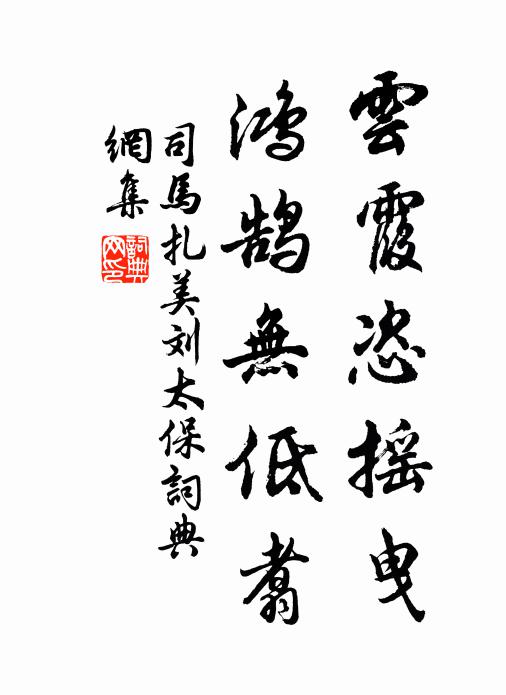 雲霞恣摇曳
鴻鹄無低翥
司馬扎美刘太保詞典
網集
詞典
网印